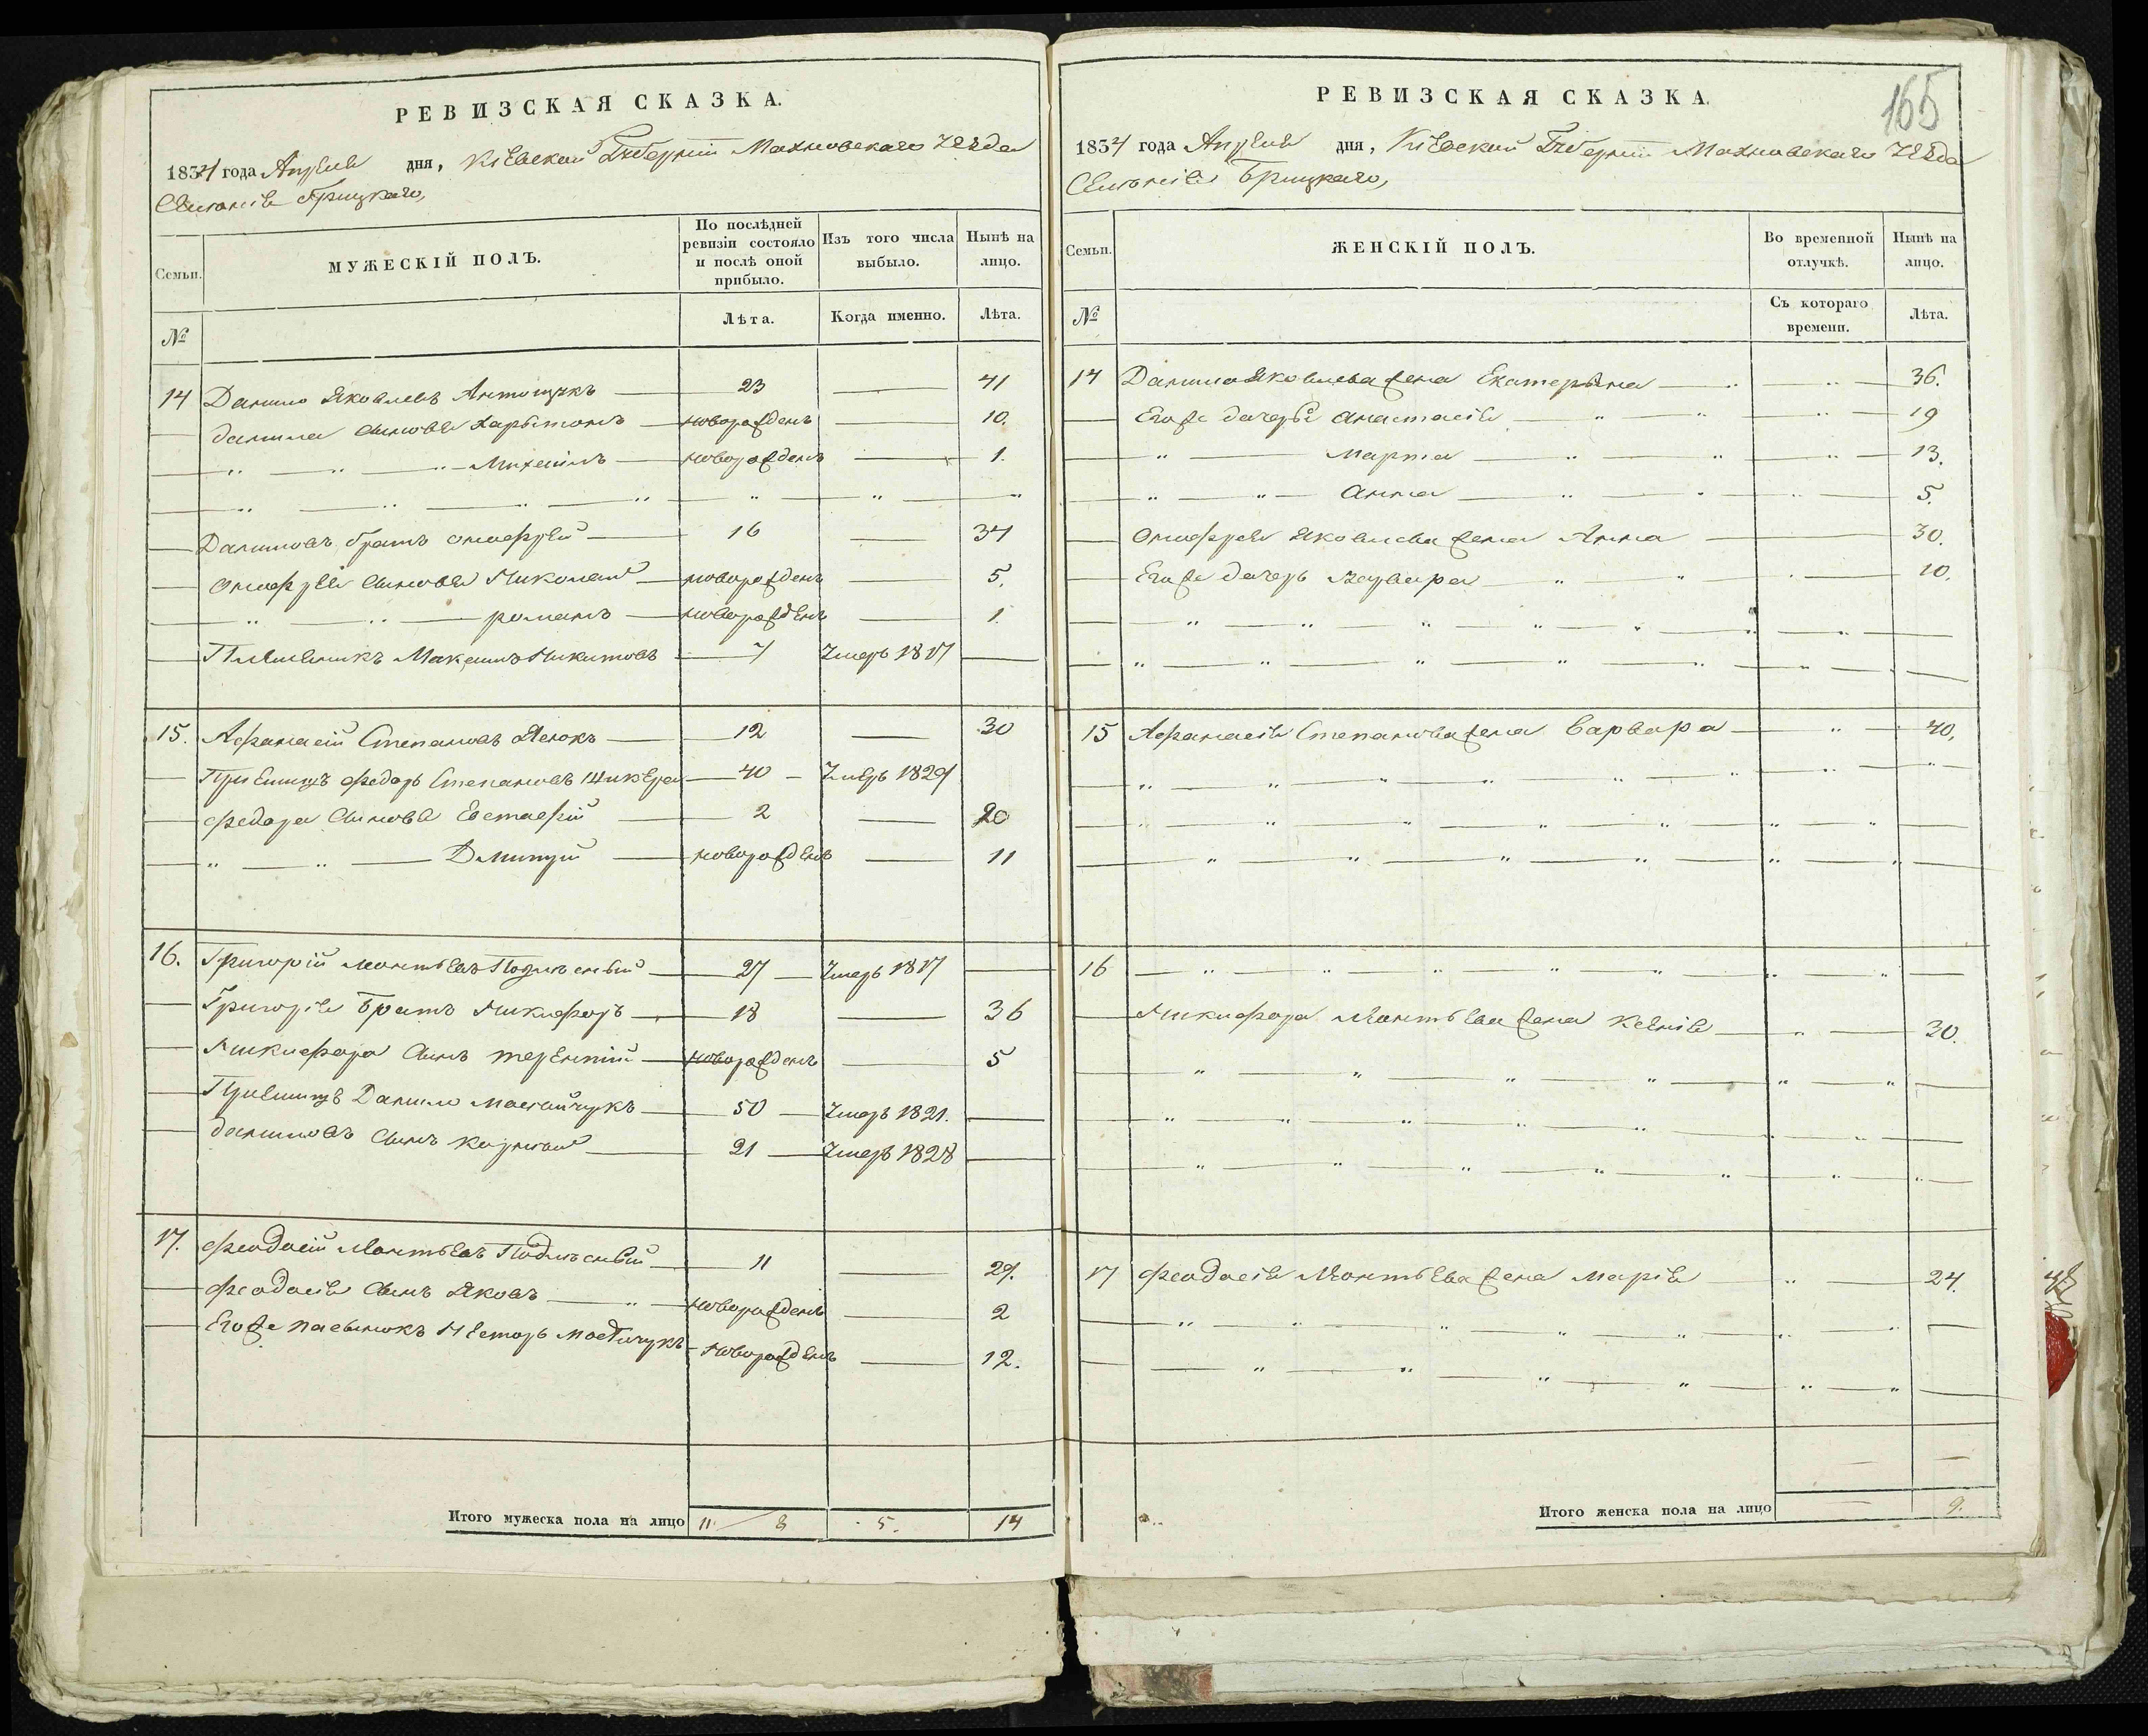 РЕВИЗСКАЯ СКАЗКА.
1834 года Апреля дня, Кіевской Губерніи Махновскаго Уезда
Селенія Брицкаго,
Семьи.
МУЖЕСКІЙ ПОЛЪ.
По послѣдней ревизіи состояло и послѣ оной прибыло.
Изъ того числа выбыло.
Нынѣ на лицо.
№
Лѣта.
Когда именно.
Лѣта.
14 Данило Яковлевъ Антощукъ 23 — 41
Данила сыновья Харытонъ новорожденъ — 10.
" " " Михайлъ новорожденъ — 1.
Даниловъ братъ Онофрей 16 — 34
Онофрея сыновья Николай новорожденъ — 5.
" " романъ новорожденъ — 1.
Племеникъ Максимъ Никитовъ 7 Умеръ 1817 —
15. Афанасій Степановъ 12 — 30
Пріемышъ Федоръ Степановъ 40 Умеръ 1829
Федора сыновья Евстафій 2 — 20
" " Дмитрій новорожденъ — 11
16. Григорій Леонтьевъ 27 Умеръ 1817 —
Григорія Братъ Никифоръ 18 — 36
Никифора сынъ терентій новорожденъ — 5
Пріемышъ Данило 50 Умеръ 1821. —
даниловъ сынъ Корнѣй 21 Умеръ 1828 —
17. Феодосій Леонтьевъ 11 — 29.
Феодосія сынъ Яковъ новорожденъ — 2
Егоже пасынокъ Несторъ новорожденъ — 12.
Итого мужеска пола на лицо 11 8 5. 14
РЕВИЗСКАЯ СКАЗКА.
165
1834 года Апреля дня, Кіевской Губерніи Махновскаго Уезда
Селенія Брицкаго,
Семьи.
ЖЕНСКІЙ ПОЛЪ.
Во временной отлучкѣ.
Нынѣ на лицо.
№
Съ котораго времени.
Лѣта.
14 Данила Яковлева жена Екатерына 36.
Егоже дочеры Анастасія 19
" Марта 13.
" " Анна 5.
Онофрея Яковлева жена Анна 30.
Егоже дочерь Варвара 10.
15 Афанасія Степанова жена Варвара 40.
16
Никифора Леонтьева жена Ксенія 30.
17 Феодосія Леонтьева жена Марія 24.
Итого женска пола на лицо — 9.